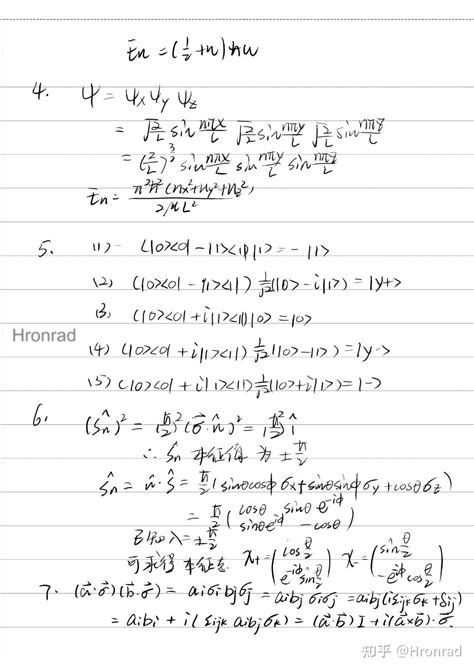 En = (1/2 + n) ħω
4. ψ = ψx ψy ψz
= √(2/L) sin nπx/L √(2/L) sin nπy/L √(2/L) sin nπz/L
= (2/L)^(3/2) sin nπx/L sin nπy/L sin nπz/L
En = π²ħ²(nx²+ny²+nz²)/2μL²
5. (1) (|0><0| - |1><1|)|1> = -|1>
(2) (|0><0| - |1><1|) 1/√2(|0> - i|1>) = |y+>
(3) (|0><0| + i|1><1|)|0> = |0>
Hronrad
(4) (|0><0| + i|1><1|) 1/√2(|0> - |1>) = |y->
(5) (|0><0| + i|1><1|) 1/√2(|0> + i|1>) = |->
6. (Ŝn)² = (ħ/2)² (σ⃗·n̂)² = (ħ/2)² Î
∴ Ŝn 本征值为 ±ħ/2
Ŝn = n̂·S⃗ = ħ/2 (sinθcosφ σx + sinθsinφ σy + cosθ σz)
= ħ/2 (cosθ sinθ e^-iφ
sinθ e^iφ -cosθ)
已知 λ = ±ħ/2
可求得本征态 χ+ = (cos θ/2
e^-iφ sin θ/2) χ- = (sin θ/2
-e^-iφ cos θ/2)
7. (a⃗·σ⃗)(b⃗·σ⃗) = aiσi bjσj = aibj σiσj = aibj(iεijk σk + δij)
= aibi + i(εijk aibj σk) = (a⃗·b⃗)I + i(a⃗×b⃗)·σ⃗.
知乎 @Hronrad